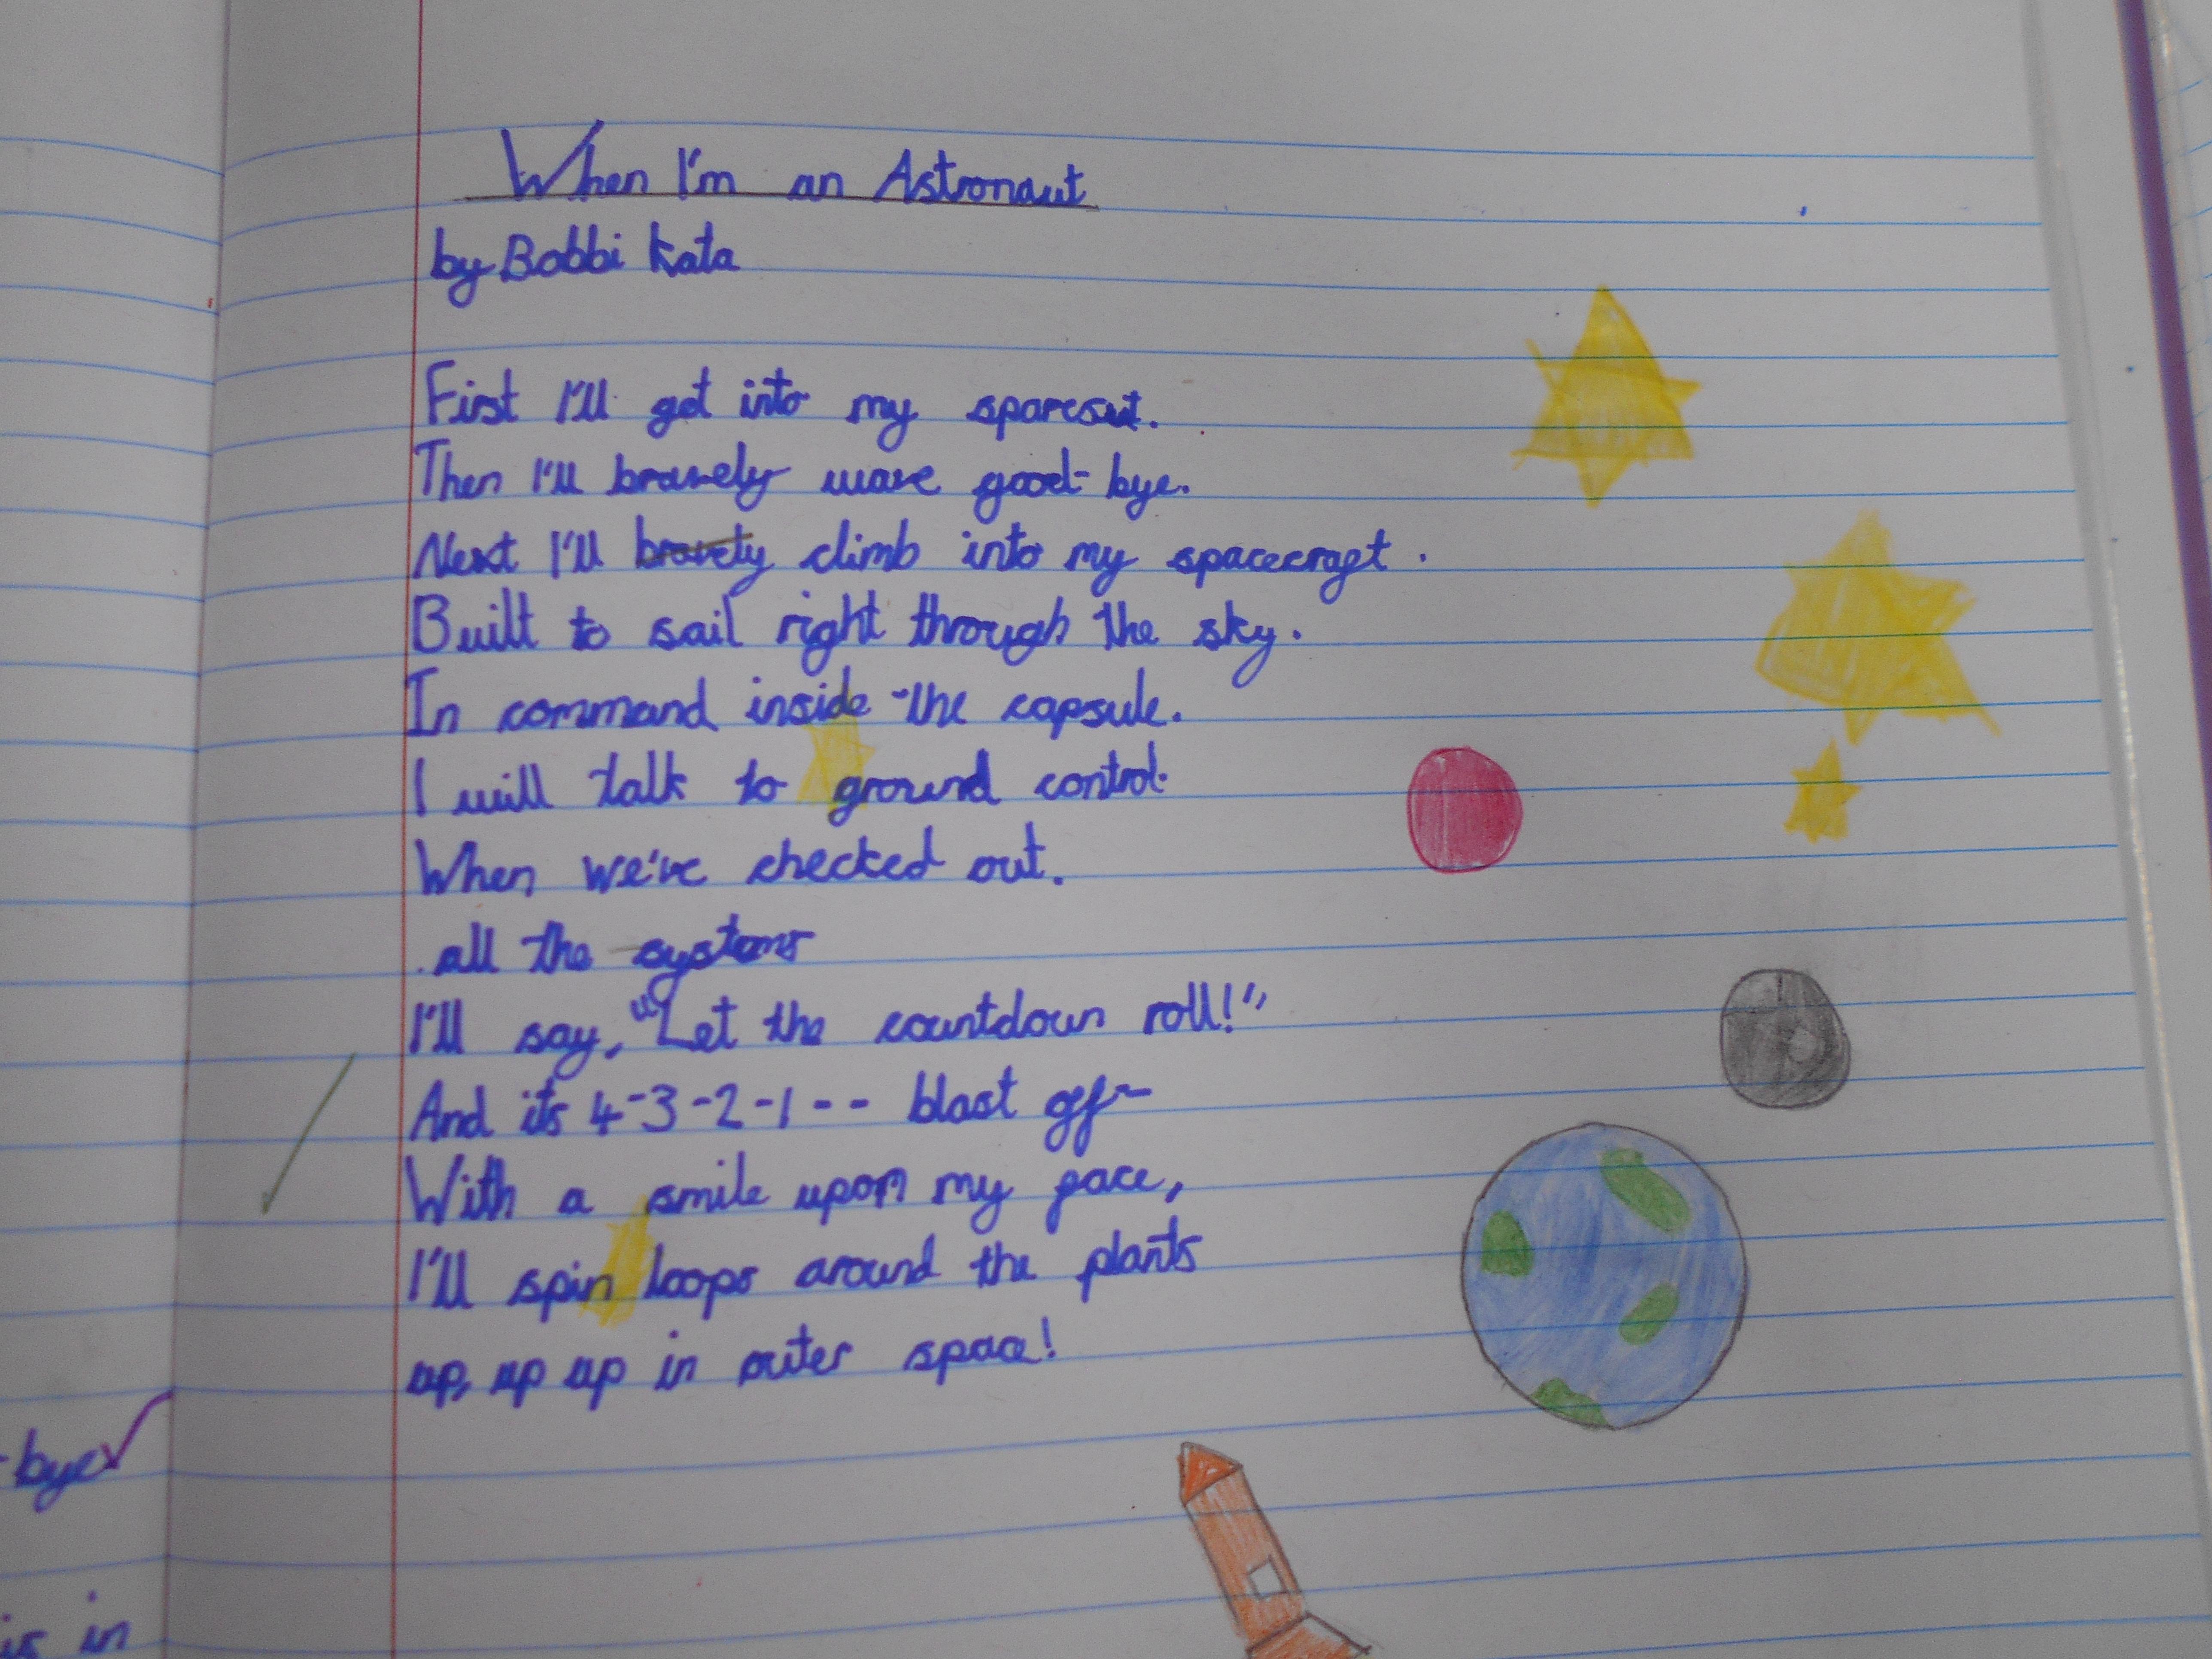 When I'm an Astronaut
by Bobbi Kata
First I'll get into my sparesut.
Then I'll bravely wave good-bye.
Next I'll bravely climb into my spacecraft.
Built to sail right through the sky.
In command inside the capsule.
I will talk to ground control.
When we've checked out.
all the systems
I'll say, "Let the countdown roll!"
And its 4-3-2-1-- blast off-
With a smile upon my face,
I'll spin loops around the plants
up, up up in outer space!
-bye
is in